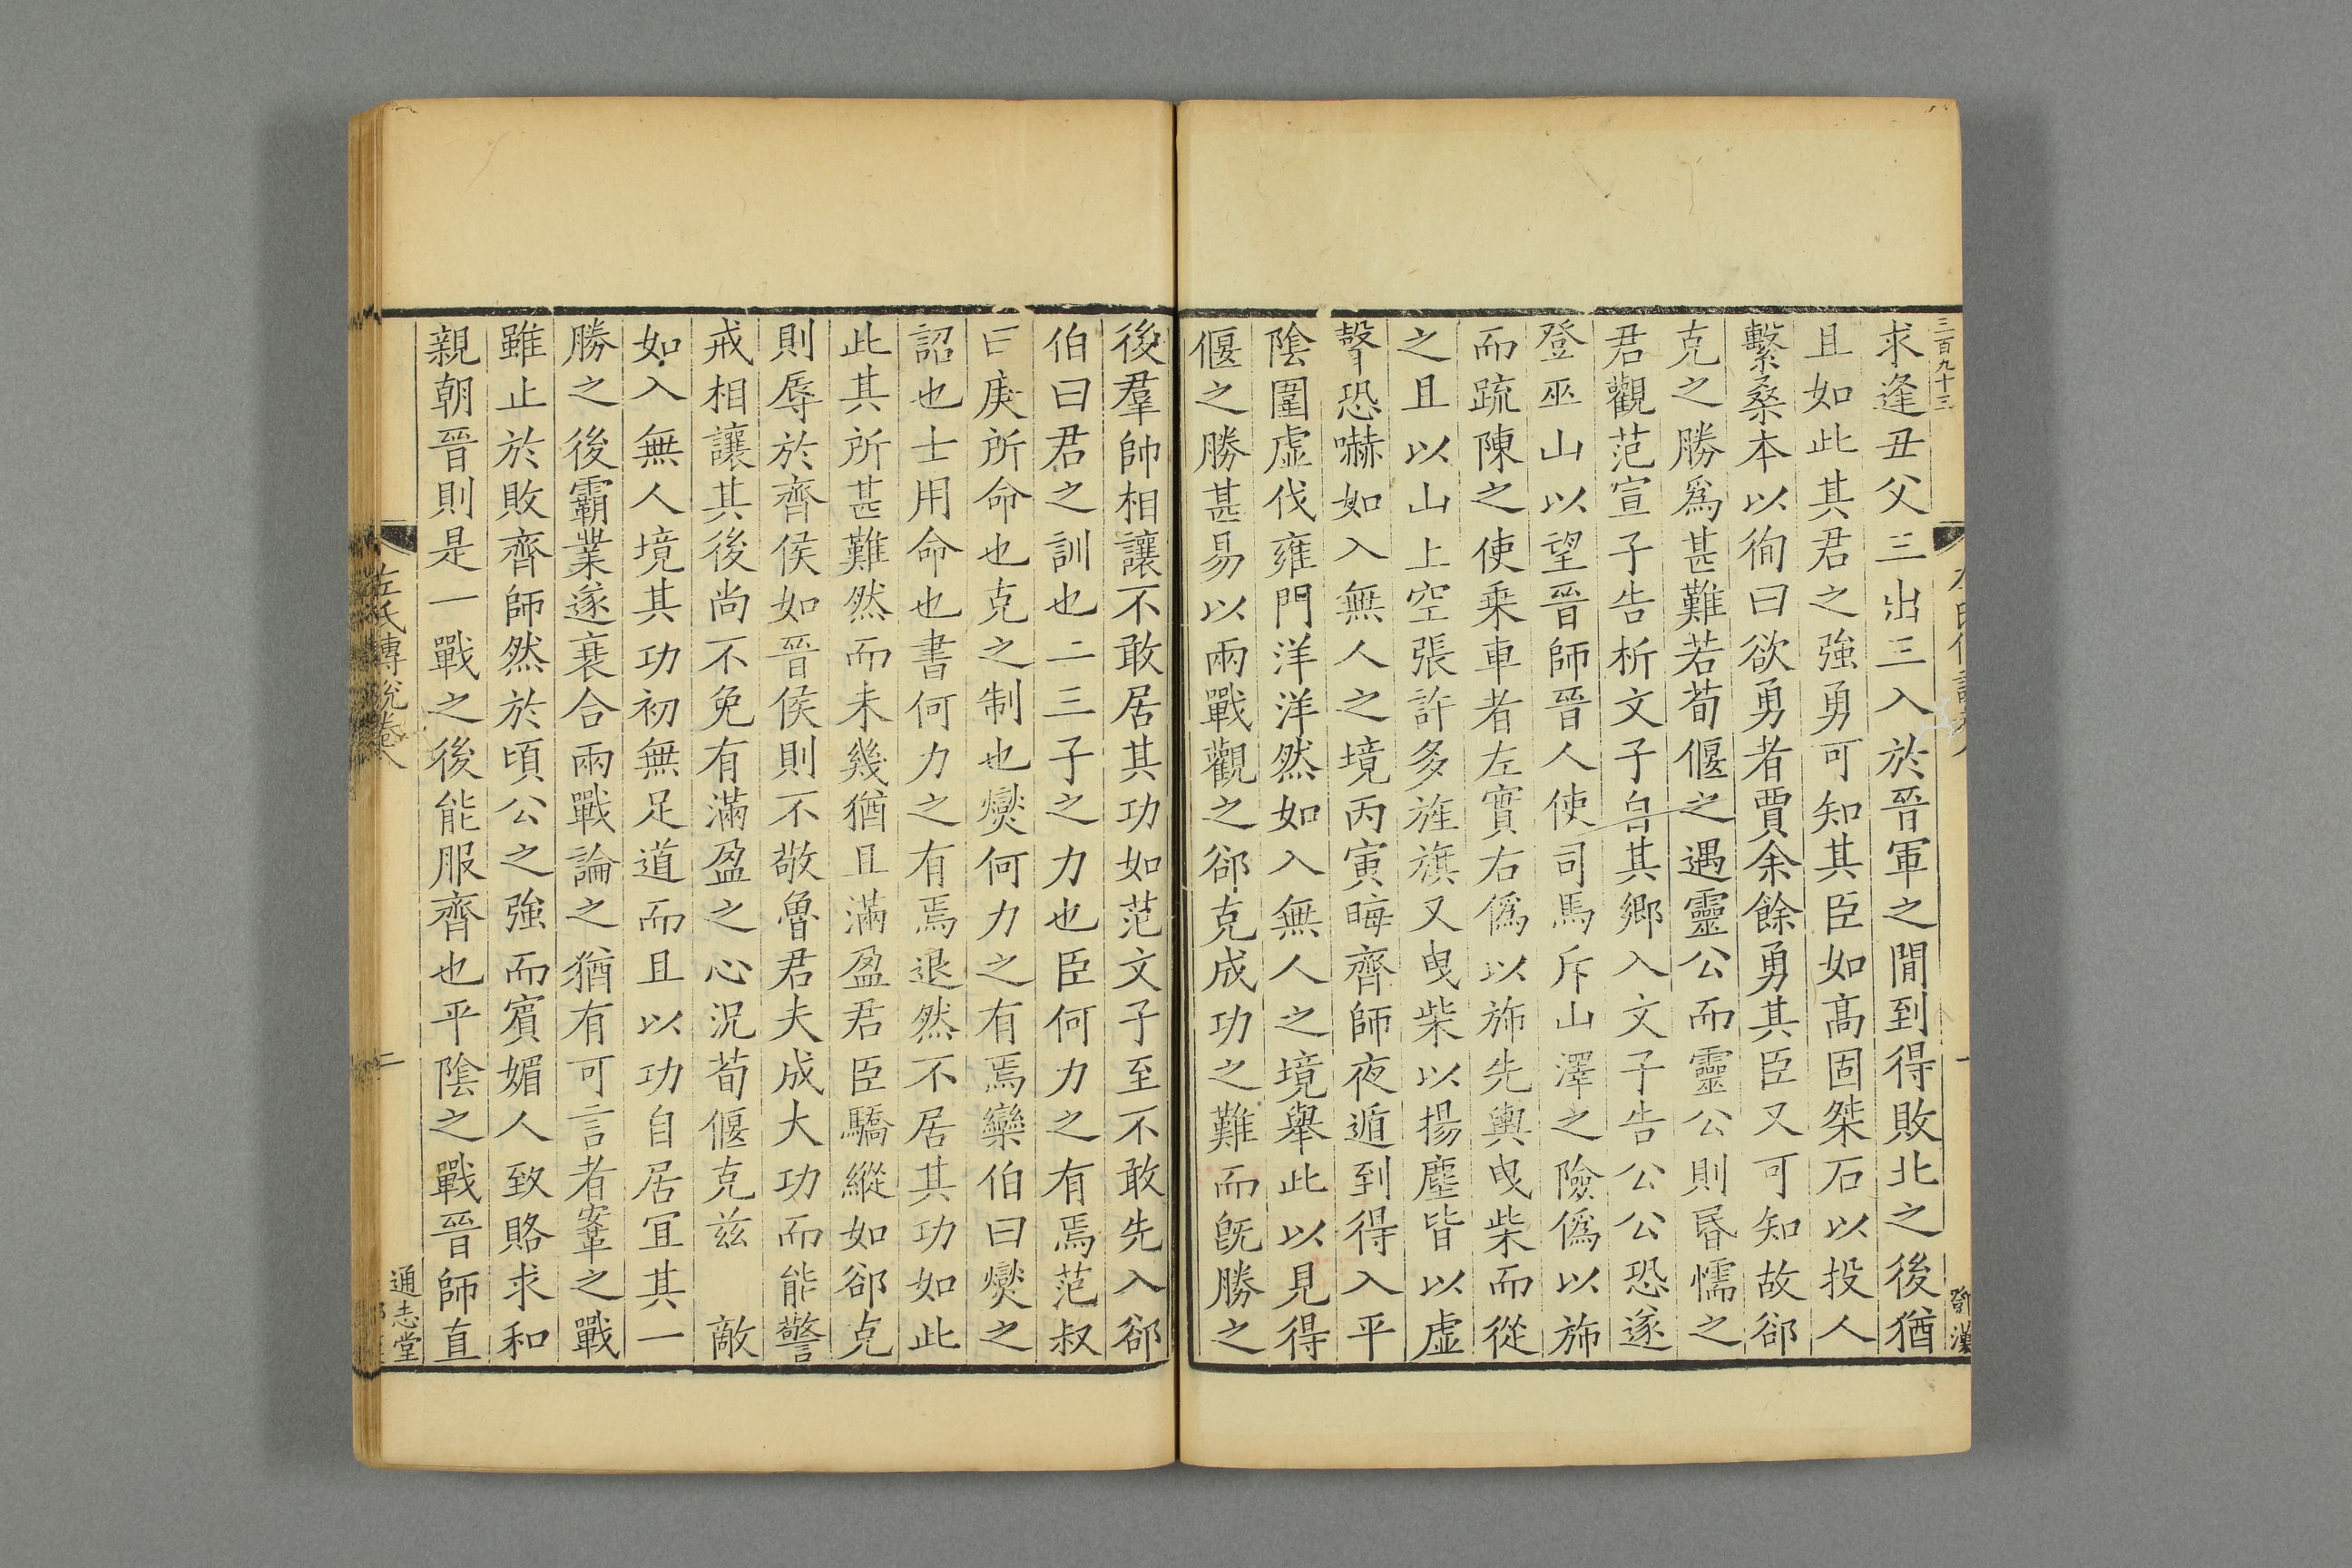 三百九十三
求逢丑父三出三入於晉軍之間到得敗北之後猶
且如此其君之強勇可知其臣如高固桀石以投人
繫桑本以徇曰欲勇者賈余餘勇其臣又可知故郤
克之勝爲甚難若荀偃之遇靈公而靈公則昬懦之
君觀范宣子告析文子自其郷入文子告公公恐遂
登巫山以望晉師晉人使司馬斥山澤之險僞以斾
而疏陳之使乗車者左實右僞以斾先輿曳柴而從
之且以山上空張許多旌旗又曳柴以揚塵皆以虚
聲恐嚇如入無人之境丙寅晦齊師夜遁到得入平
隂圍虚伐雍門洋洋然如入無人之境舉此以見得
偃之勝甚易以兩戰觀之郤克成功之難而旣勝之
後羣帥相讓不敢居其功如范文子至不敢先入郤
伯曰君之訓也二三子之力也臣何力之有焉范叔
曰庚所命也克之制也燮何力之有焉欒伯曰燮之
詔也士用命也書何力之有焉退然不居其功如此
此其所甚難然而未幾猶且滿盈君臣驕縱如郤克
則辱於齊侯如晉侯則不敬魯君夫成大功而能警
戒相讓其後尚不免有滿盈之心況荀偃克兹 敵
如入無人境其功初無足道而且以功自居宜其一
勝之後霸業遂衰合兩戰論之猶有可言者鞌之戰
雖止於敗齊師然於頃公之強而賓媚人致賂求和
親朝晉則是一戰之後能服齊也平隂之戰晉師直
左氏傳說卷八
二
通志堂